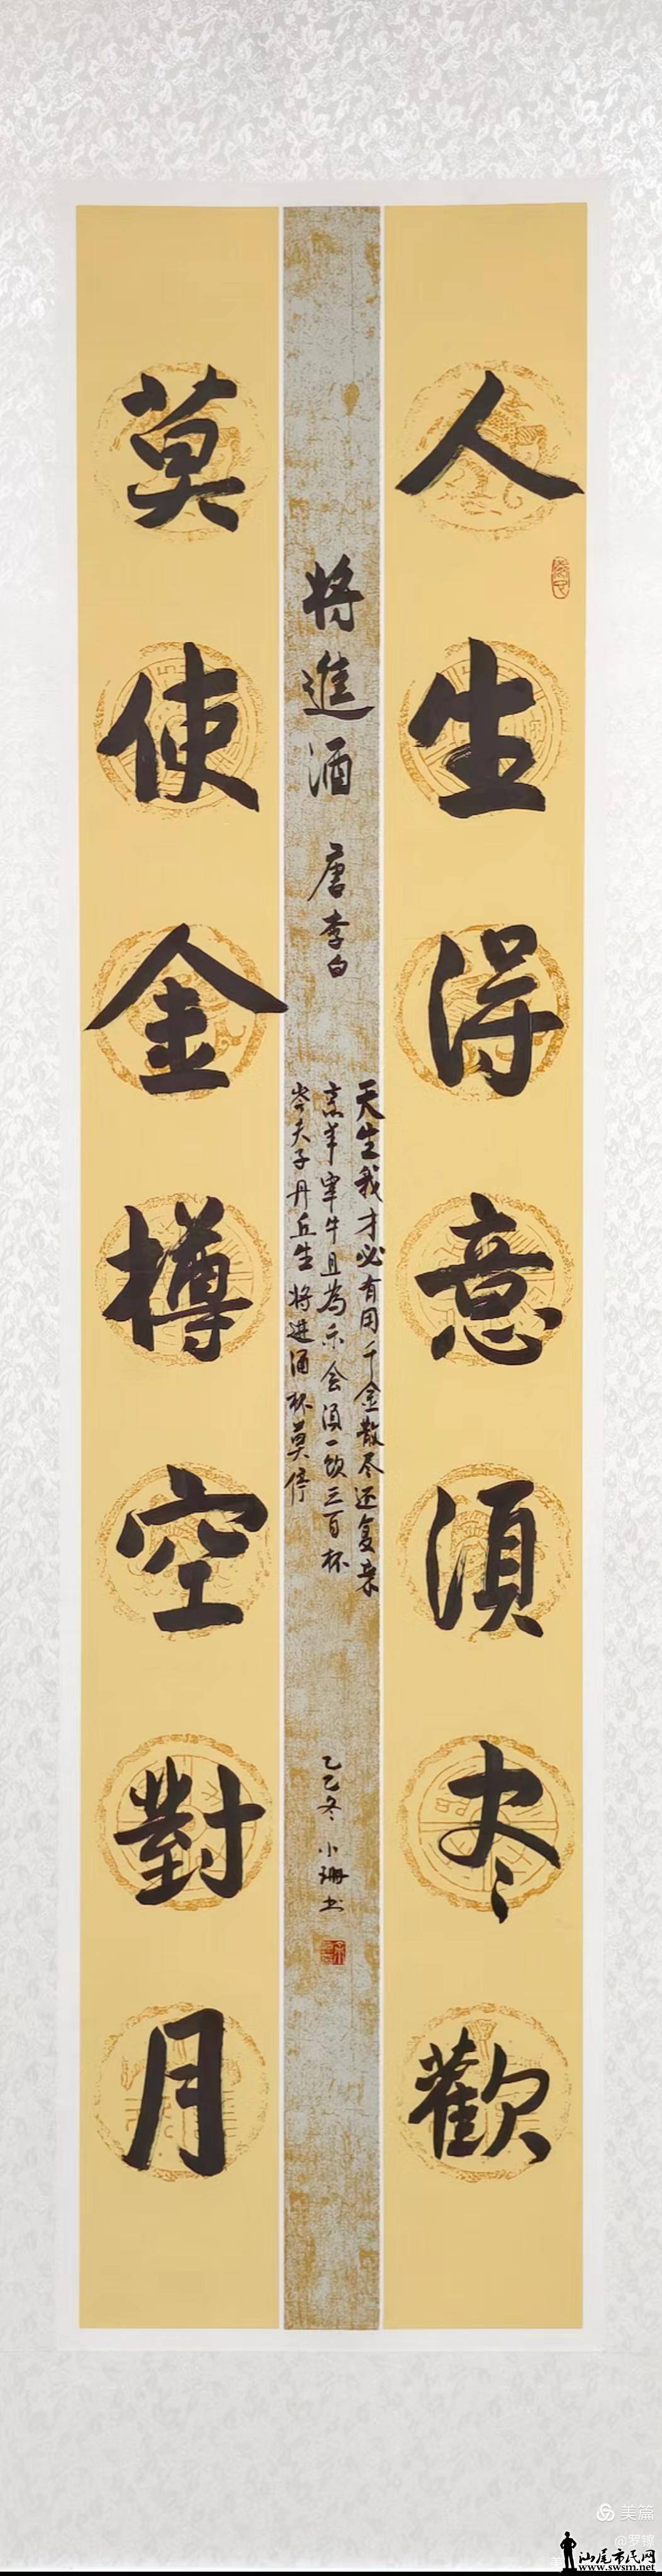 人生得意須尽歡
将進酒 唐李白
天生我才必有用千金散尽还复来
烹羊宰牛且為乐会须一饮三百杯
岑夫子丹丘生将进酒杯莫停
乙巳冬 小珊书
莫使金樽空對月
美篇
汕尾市民网
www.swsm.net